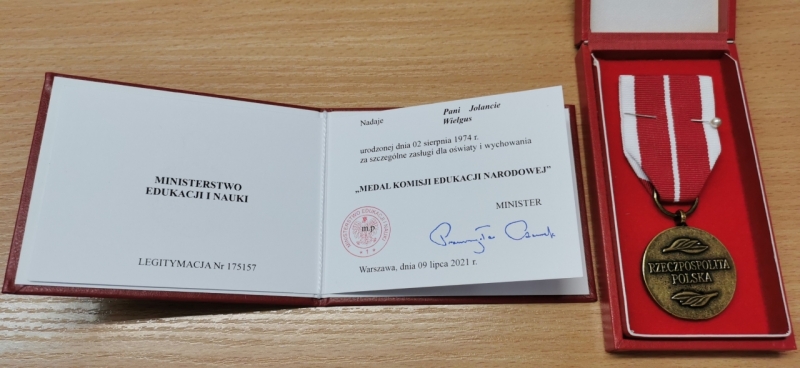 MINISTERSTWO
EDUKACJI I NAUKI
LEGITYMACJA Nr 175157
Nadaje
Pani Jolancie
Wielgus
urodzonej dnia 02 sierpnia 1974 r.
za szczególne zasługi dla oświaty i wychowania
„MEDAL KOMISJI EDUKACJI NARODOWEJ”
MINISTER
m.p.
MINISTERSTWO EDUKACJI I NAUKI
Warszawa, dnia 09 lipca 2021 r.
RZECZPOSPOLITA
POLSKA